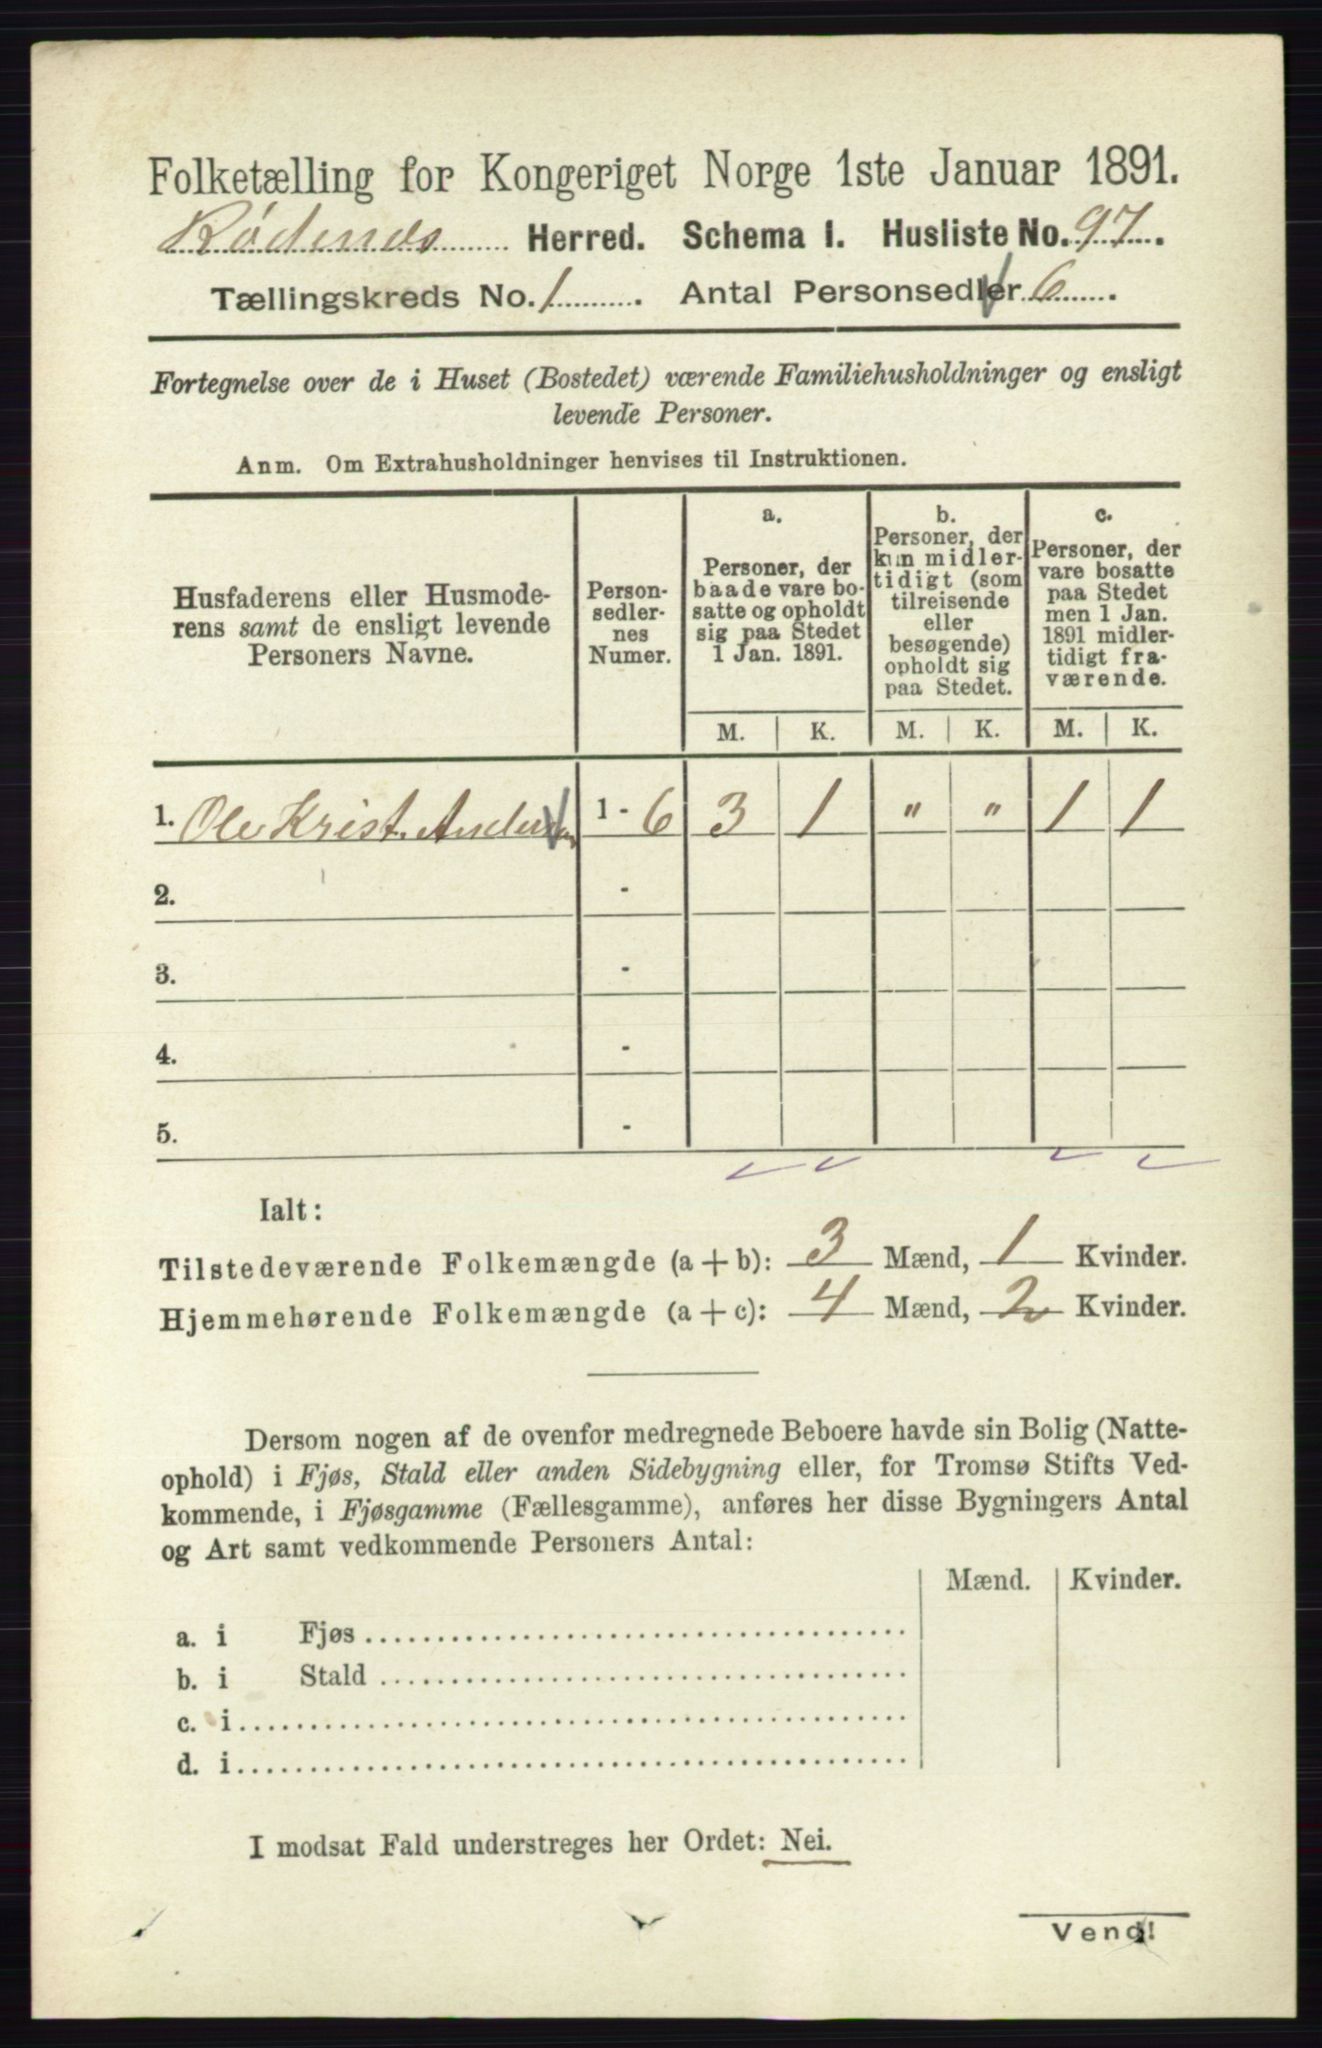 Folketælling for Kongeriget Norge 1ste Januar 1891.
Rødenes Herred. Schema I. Husliste No. 97.
Tællingskreds No. 1. Antal Personsedler 6.
Fortegnelse over de i Huset (Bostedet) værende Familiehusholdninger og ensligt
levende Personer.
Anm. Om Extrahusholdninger henvises til Instruktionen.
Husfaderens eller Husmode-
rens samt de ensligt levende
Personers Navne.
Person-
sedler-
nes
Numer.
a.
Personer, der
baade vare bo-
satte og opholdt
sig paa Stedet
1 Jan. 1891.
b.
Personer, der
kun midler-
tidigt (som
tilreisende
eller
besøgende)
opholdt sig
paa Stedet.
c.
Personer, der
vare bosatte
paa Stedet
men 1 Jan.
1891 midler-
tidigt fra-
værende.
M. K. M. K. M. K.
1. Ole Krist. Andersen 1 - 6 3 1 " " 1 1
2. -
3. -
4. -
5. -
Ialt:
Tilstedeværende Folkemængde (a + b): 3 Mænd, 1 Kvinder.
Hjemmehørende Folkemængde (a + c): 4 Mænd, 2 Kvinder.
Dersom nogen af de ovenfor medregnede Beboere havde sin Bolig (Natte-
ophold) i Fjøs, Stald eller anden Sidebygning eller, for Tromsø Stifts Ved-
kommende, i Fjøsgamme (Fællesgamme), anføres her disse Bygningers Antal
og Art samt vedkommende Personers Antal:
Mænd. Kvinder.
a. i Fjøs
b. i Stald
c. i
d. i
I modsat Fald understreges her Ordet: Nei.
Vend!